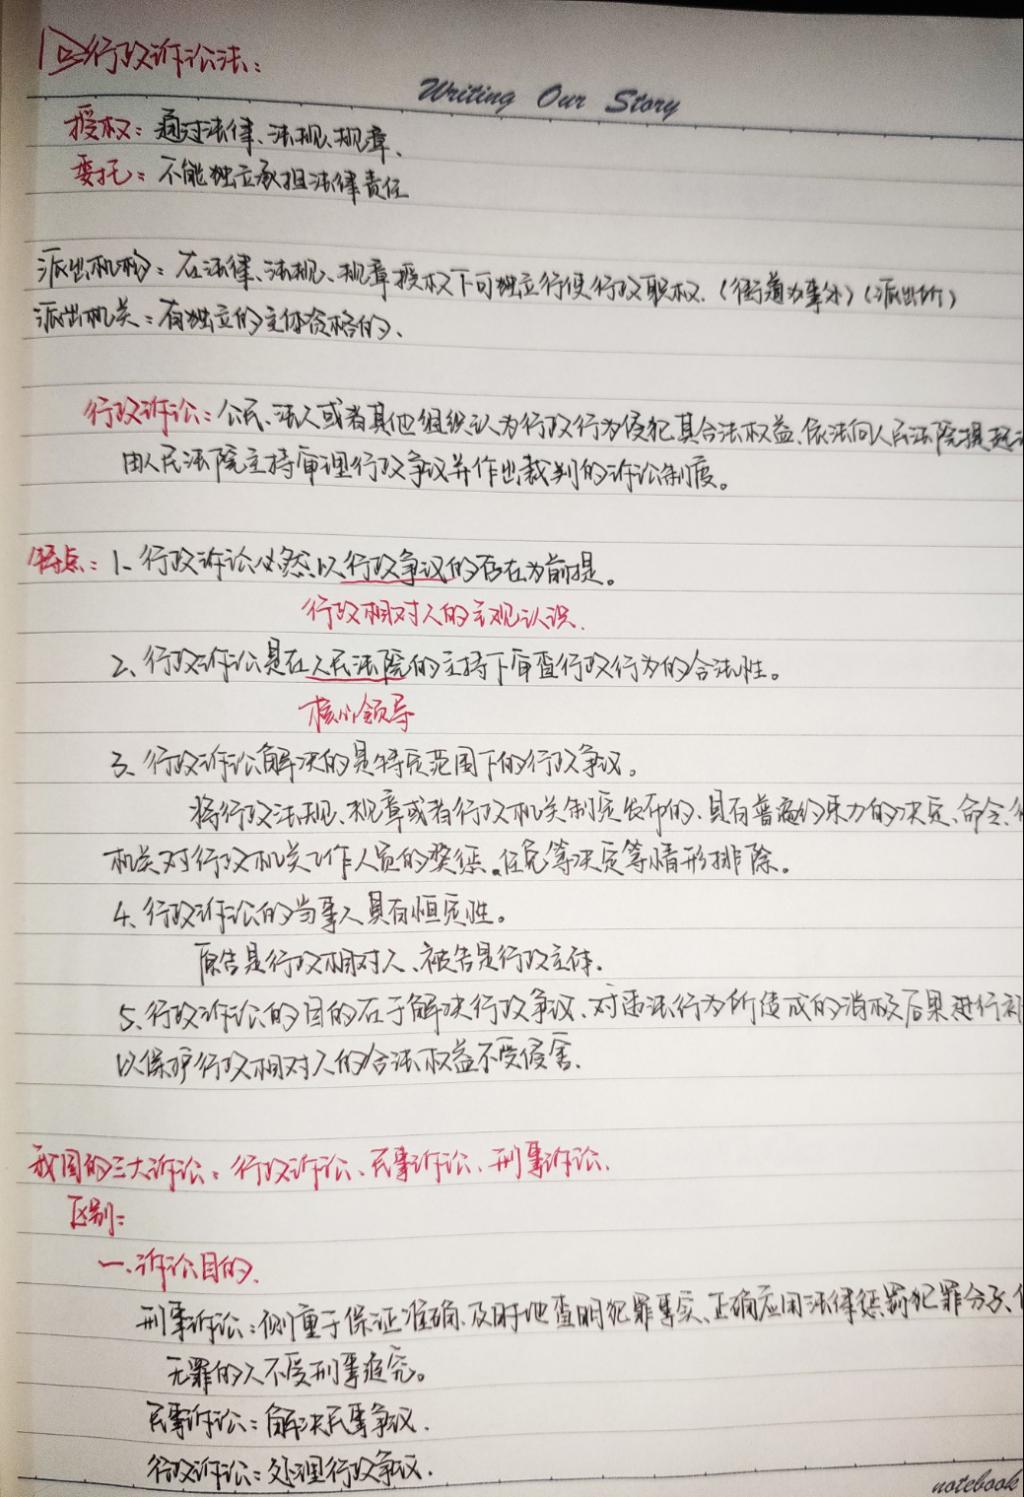 行政诉讼法：
Writing Our Story
授权：通过法律、法规、规章、
委托：不能独立承担法律责任
派出机构：在法律、法规、规章授权下可独立行使行政职权.（街道办事处）（派出所）
派出机关：有独立的主体资格的、
行政诉讼：公民、法人或者其他组织认为行政行为侵犯其合法权益.依法向人民法院提起
由人民法院主持审理行政争议并作出裁判的诉讼制度。
特点：1、行政诉讼必然以行政争议的存在为前提。
行政相对人的主观认识.
2、行政诉讼是在人民法院的主持下审查行政行为的合法性。
核心领导
3、行政诉讼解决的是特定范围下的行政争议。
将行政法规、规章或者行政机关制定发布的、具有普遍约束力的决定、命令、
机关对行政机关工作人员的奖惩、任免等决定等情形排除。
4、行政诉讼的当事人具有恒定性。
原告是行政相对人、被告是行政主体.
5、行政诉讼的目的在于解决行政争议、对违法行为所造成的消极后果进行
以保护行政相对人的合法权益不受侵害.
我国的三大诉讼：行政诉讼、民事诉讼、刑事诉讼.
区别：
一、诉讼目的.
刑事诉讼：侧重于保证准确、及时地查明犯罪事实、正确应用法律惩罚犯罪分子、
无罪的人不受刑事追究。
民事诉讼：解决民事争议.
行政诉讼：处理行政争议.
notebook